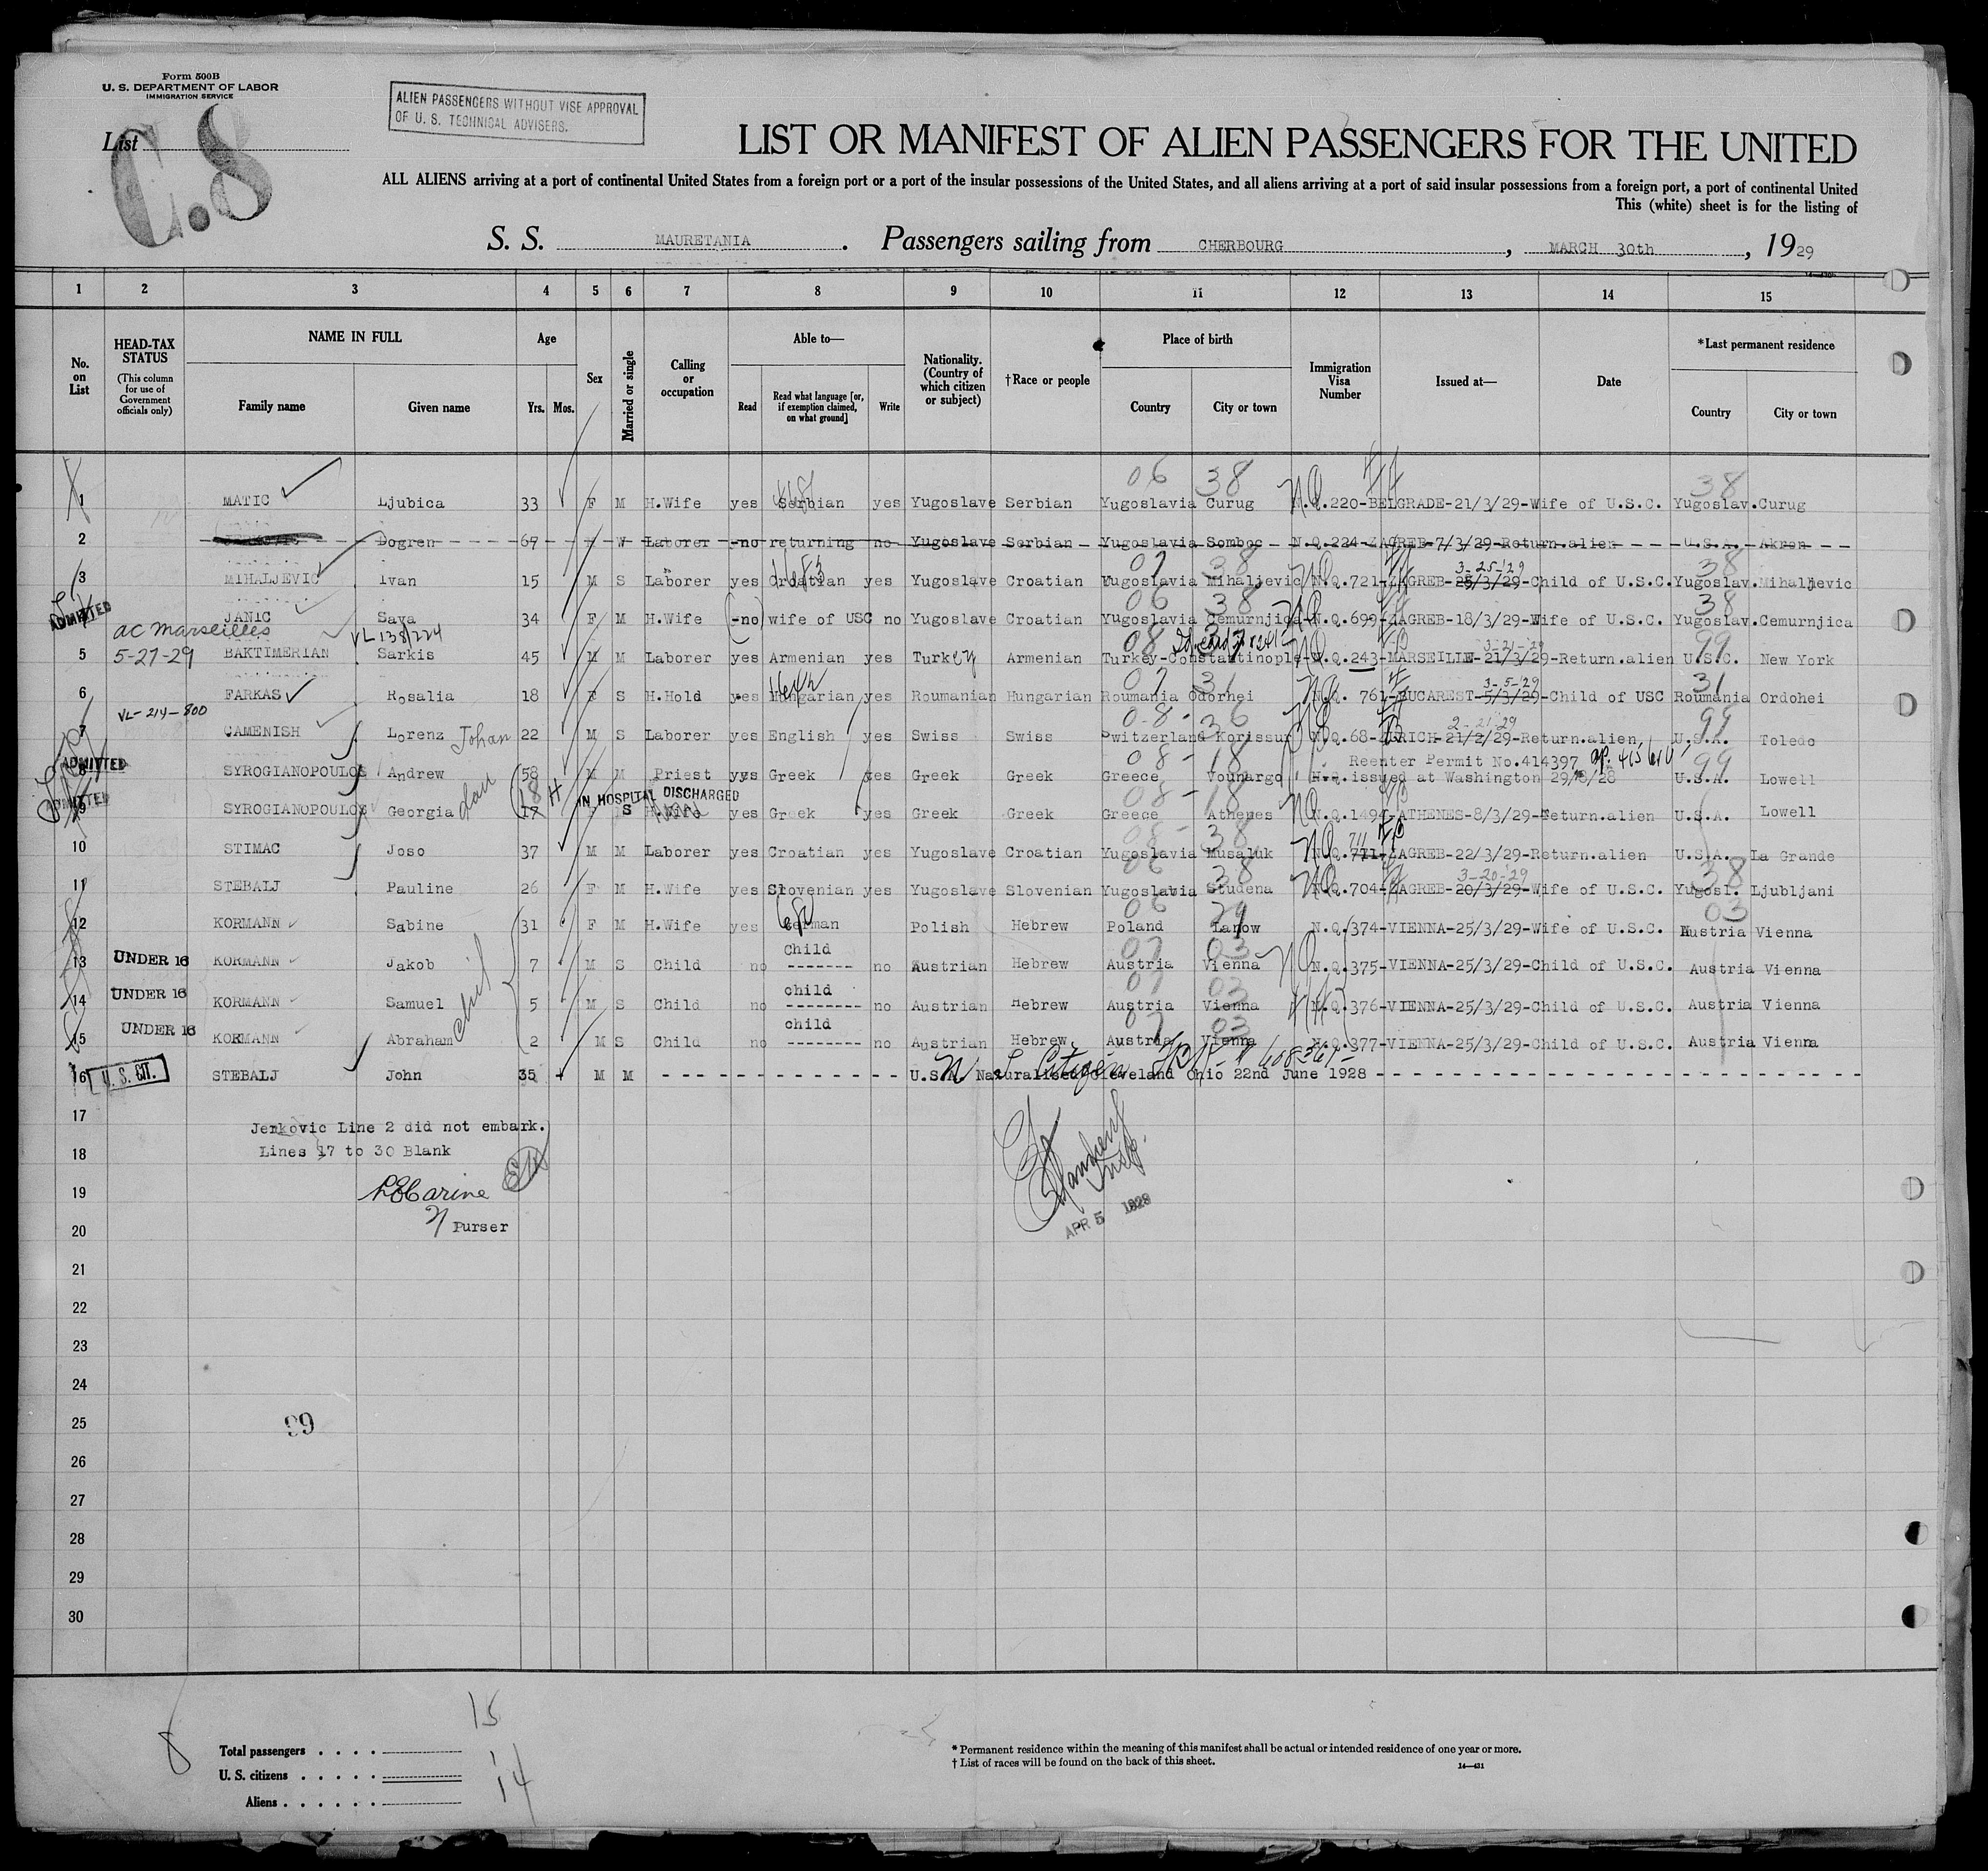 Form 500B
U. S. DEPARTMENT OF LABOR
IMMIGRATION SERVICE
ALIEN PASSENGERS WITHOUT VISE APPROVAL
OF U. S. TECHNICAL ADVISERS.
List
C.8
LIST OR MANIFEST OF ALIEN PASSENGERS FOR THE UNITED
ALL ALIENS arriving at a port of continental United States from a foreign port or a port of the insular possessions of the United States, and all aliens arriving at a port of said insular possessions from a foreign port, a port of continental United
This (white) sheet is for the listing of
S. S. MAURETANIA. Passengers sailing from CHERBOURG, MARCH 30th, 1929
1 2 3 4 5 6 7 8 9 10 11 12 13 14 15
No. on List
HEAD-TAX STATUS
(This column for use of Government officials only)
NAME IN FULL
Family name Given name
Age
Yrs. Mos.
Sex
Married or single
Calling or occupation
Able to—
Read
Read what language [or, if exemption claimed, on what ground]
Write
Nationality. (Country of which citizen or subject)
†Race or people
Place of birth
Country City or town
Immigration Visa Number
Issued at—
Date
*Last permanent residence
Country City or town
06 38 38
1 MATIC Ljubica 33 F M H.Wife yes Serbian yes Yugoslave Serbian Yugoslavia Curug N.Q.220-BELGRADE-21/3/29-Wife of U.S.C. Yugoslav.Curug
2 Dogren 67 W Laborer -no returning no Yugoslave Serbian Yugoslavia Somboc N.Q.224-ZAGREB-7/3/29-Return.alien U.S.A. Akron
07 38 3-25-29 38
3 MIHALJEVIC Ivan 15 M S Laborer yes Croatian yes Yugoslave Croatian Yugoslavia Mihaljevic N.Q.721-ZAGREB-25/3/29-Child of U.S.C.Yugoslav.Mihaljevic
06 38 38
ADMITTED JANIC Sava 34 F M H.Wife (-no) wife of USC no Yugoslave Croatian Yugoslavia Cemurnjica N.Q.699-ZAGREB-18/3/29-Wife of U.S.C. Yugoslav.Cemurnjica
ac marseilles VL 138/224 08 37 3-21-29 99
5 5-27-29 BAKTIMERIAN Sarkis 45 M M Laborer yes Armenian yes Turkey Armenian Turkey-Constantinople-N.Q.243-MARSEILLE-21/3/29-Return.alien U.S.C. New York
07 31 3-5-29 31
6 FARKAS Rosalia 18 F S H.Hold yes Hungarian yes Roumanian Hungarian Roumania Odorhei N.Q. 761-BUCAREST-5/3/29-Child of USC Roumania Ordohei
VL-214-800 08- 36 2-21-29 99
7 CAMENISH Lorenz Johan 22 M S Laborer yes English yes Swiss Swiss Switzerland Korissur N.Q.68-ZURICH-21/2/29-Return.alien, U.S.A. Toledo
08- 18 Reenter Permit No.414397 99
ADMITTED 8 SYROGIANOPOULOS Andrew 58 M M Priest yes Greek yes Greek Greek Greece Vounargo N.Q.issued at Washington 29/8/28 U.S.A. Lowell
18 IN HOSPITAL DISCHARGED 08- 18
ADMITTED 9 SYROGIANOPOULOS Georgia dau 17 S yes Greek yes Greek Greek Greece Athenes N.Q.1494-ATHENES-8/3/29-Return.alien U.S.A. Lowell
08- 38 711
10 STIMAC Joso 37 M M Laborer yes Croatian yes Yugoslave Croatian Yugoslavia Musaluk N.Q.771-ZAGREB-22/3/29-Return.alien U.S.A. La Grande
06 38 3-20-29 38
11 STEBALJ Pauline 26 F M H.Wife yes Slovenian yes Yugoslave Slovenian Yugoslavia Studena N.Q.704-ZAGREB-20/3/29-Wife of U.S.C. Yugosl. Ljubljani
06 29 03
12 KORMANN Sabine 31 F M H.Wife yes German Polish Hebrew Poland Lanow N.Q.374-VIENNA-25/3/29-Wife of U.S.C. Austria Vienna
Child 07 03
13 UNDER 16 KORMANN Jakob 7 M S Child no ------- no Austrian Hebrew Austria Vienna N.Q.375-VIENNA-25/3/29-Child of U.S.C. Austria Vienna
child 07 03
14 UNDER 16 KORMANN Samuel child 5 M S Child no -------- no Austrian Hebrew Austria Vienna N.Q.376-VIENNA-25/3/29-Child of U.S.C. Austria Vienna
child 07 03
15 UNDER 16 KORMANN Abraham 2 M S Child no -------- no Austrian Hebrew Austria Vienna N.Q.377-VIENNA-25/3/29-Child of U.S.C. Austria Vienna
16 U. S. CIT. STEBALJ John 35 M M - - - U.S.A. Naturalised Cleveland Ohio 22nd June 1928 - - -
17
Jerkovic Line 2 did not embark.
18 Lines 17 to 30 Blank
19
20 Purser
APR 5 1929
21
22
23
24
25 99
26
27
28
29
30
15
8 Total passengers
U. S. citizens
14
Aliens
* Permanent residence within the meaning of this manifest shall be actual or intended residence of one year or more.
† List of races will be found on the back of this sheet.
14—431